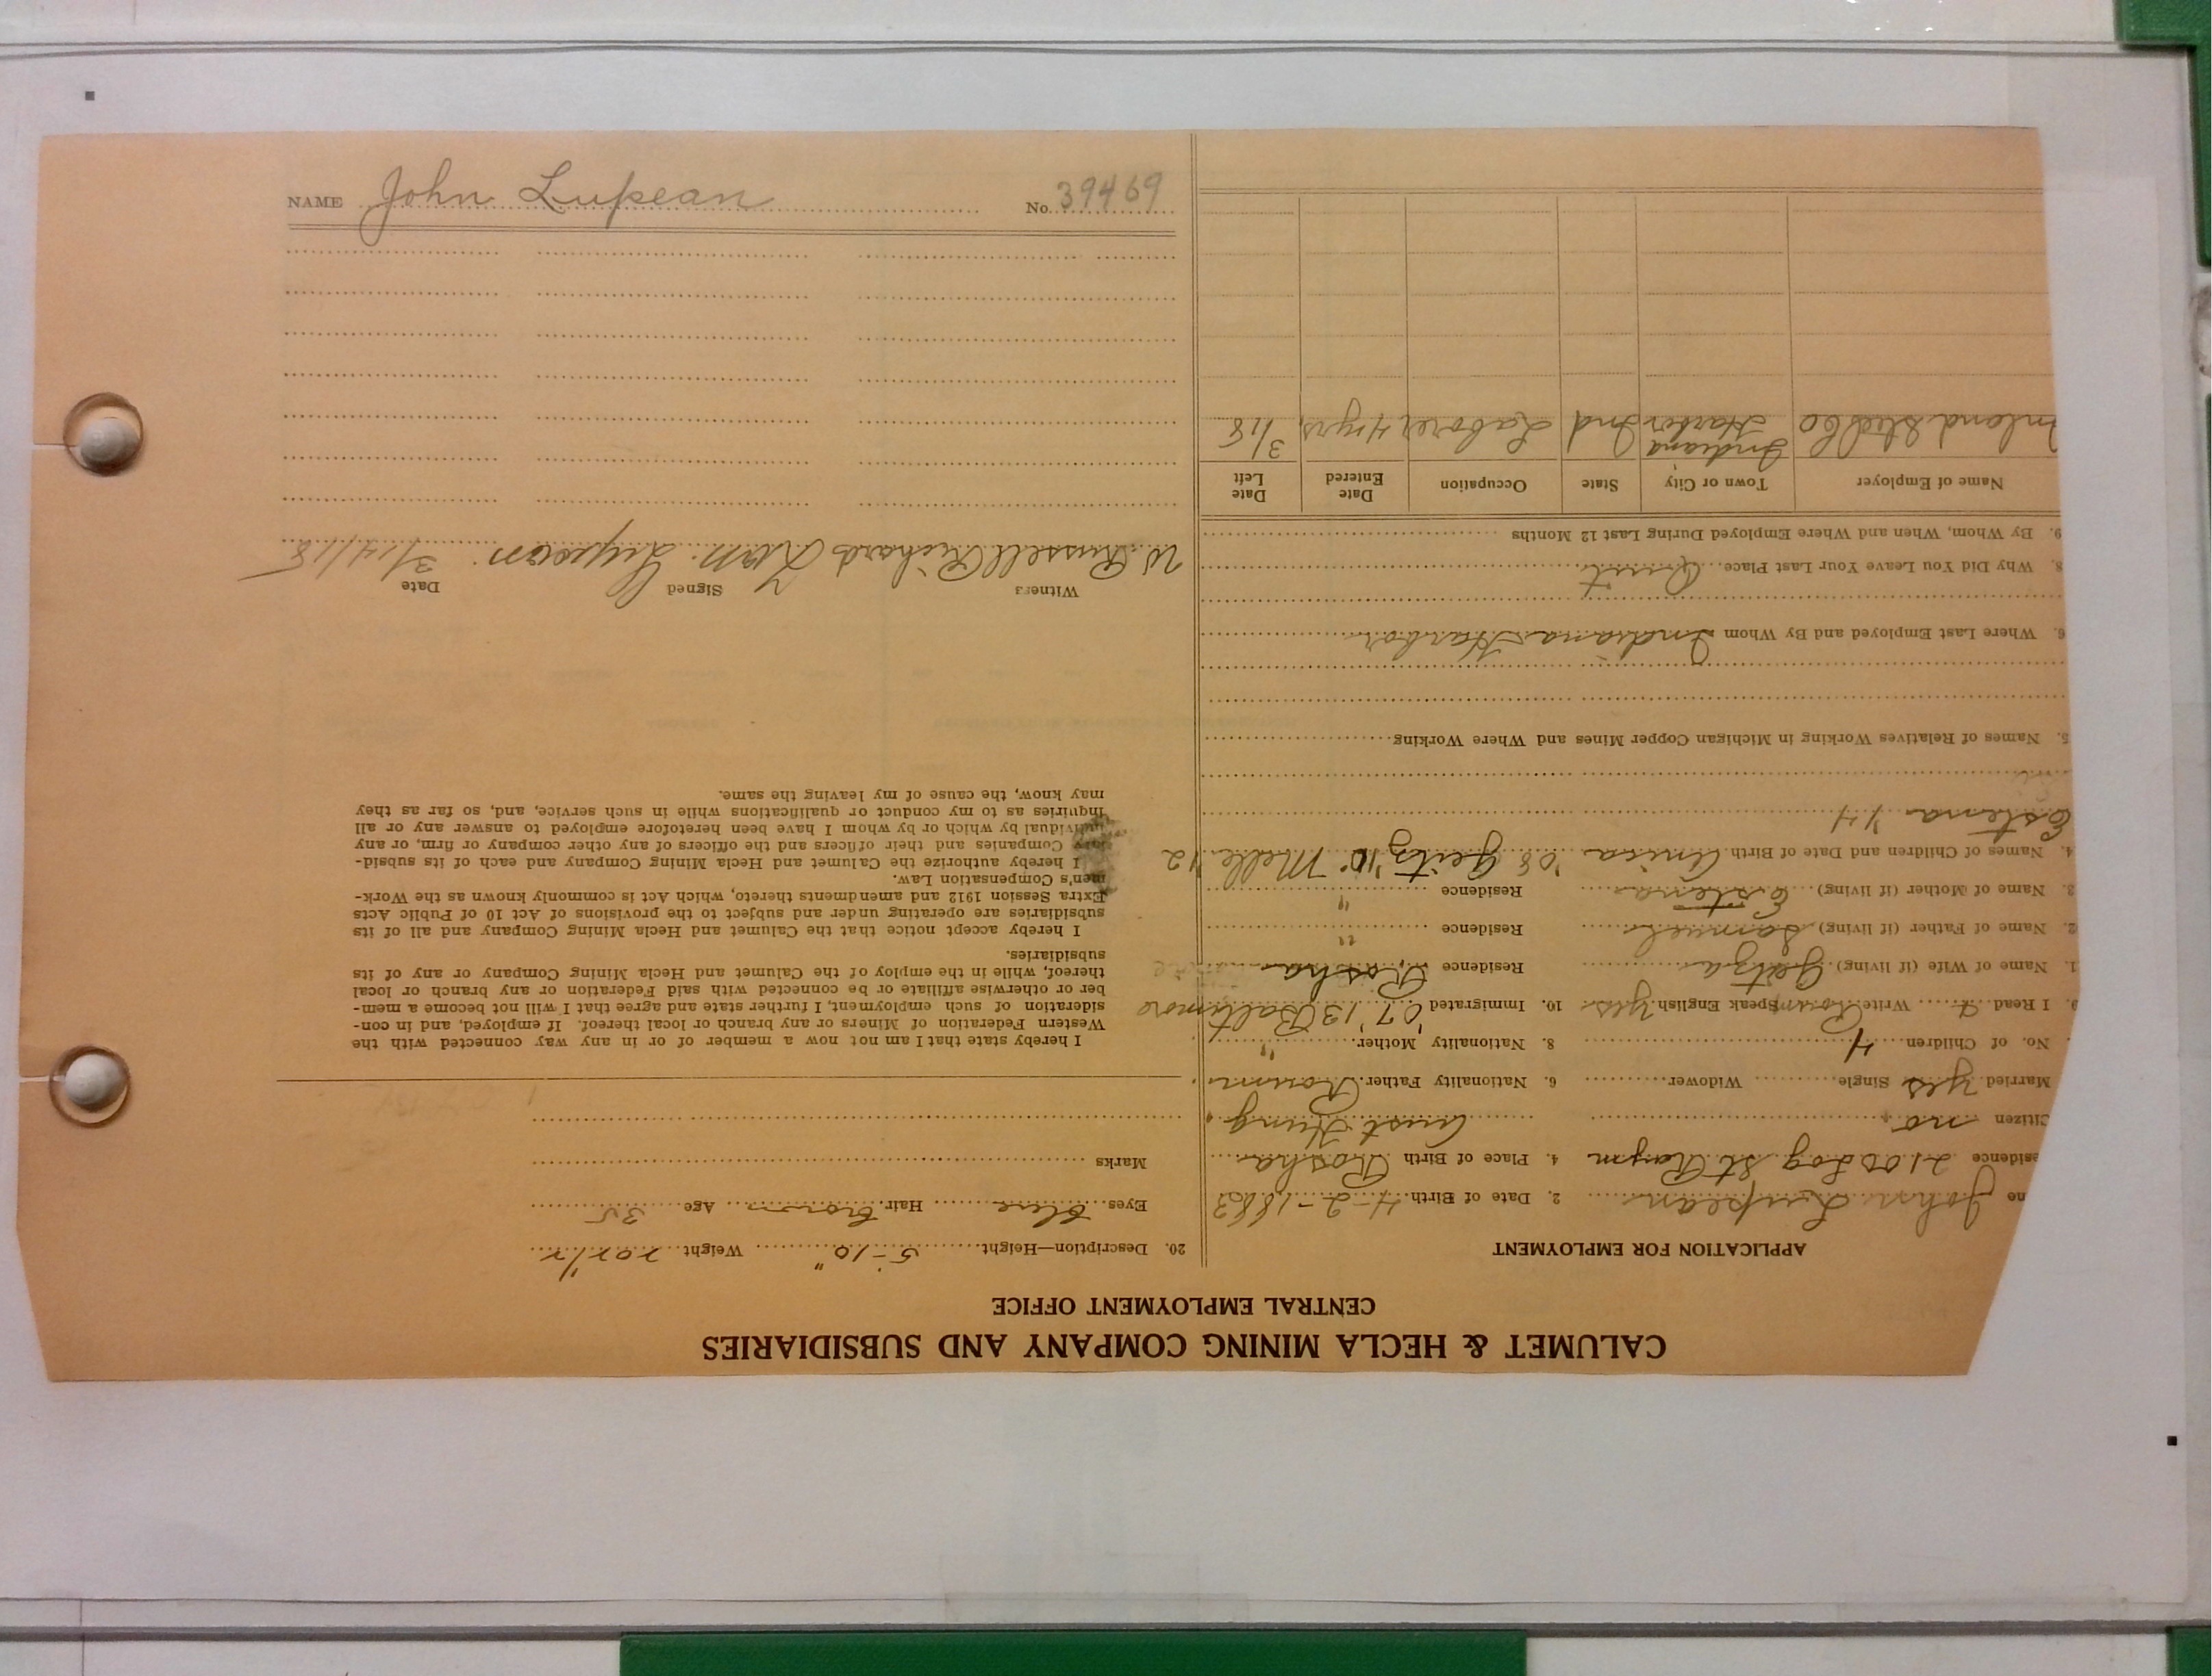 NAME John Lupean No. 39469
CALUMET & HECLA MINING COMPANY AND SUBSIDIARIES
CENTRAL EMPLOYMENT OFFICE
APPLICATION FOR EMPLOYMENT
me John Lupean 2. Date of Birth 4-2-1883
esidence 2100 Log St 4. Place of Birth Rosha
Citizen no Aust Hung
Married yes Single Widower 6. Nationality Father Roum
No. of Children 4 8. Nationality Mother "
9. I Read Write Roum Speak English yes 10. Immigrated '07, '13 Baltimore
1. Name of Wife (if living) Getza Residence Rosha
2. Name of Father (if living) Samuel Residence "
3. Name of Mother (if living) Estena Residence "
4. Names of Children and Date of Birth Anica '08 Geitz '10 Melle '12
Estena '14
5. Names of Relatives Working in Michigan Copper Mines and Where Working
6. Where Last Employed and By Whom Indiana Harbor
8. Why Did You Leave Your Last Place Quit
9. By Whom, When and Where Employed During Last 12 Months
Name of Employer Town or City State Occupation Date Entered Date Left
Inland Steel Co Indiana Harbor Ind Laborer 4 yrs 3/18
20. Description—Height 5-10" Weight
Eyes blue Hair brown Age 35
Marks
I hereby state that I am not now a member of or in any way connected with the
Western Federation of Miners or any branch or local thereof. If employed, and in con-
sideration of such employment, I further state and agree that I will not become a mem-
ber or otherwise affiliate or be connected with said Federation or any branch or local
thereof, while in the employ of the Calumet and Hecla Mining Company or any of its
subsidiaries.
I hereby accept notice that the Calumet and Hecla Mining Company and all of its
subsidiaries are operating under and subject to the provisions of Act 10 of Public Acts
Extra Session 1912 and amendments thereto, which Act is commonly known as the Work-
men's Compensation Law.
I hereby authorize the Calumet and Hecla Mining Company and each of its subsid-
iary Companies and their officers and the officers of any other company or firm, or any
individual by which or by whom I have been heretofore employed to answer any or all
inquiries as to my conduct or qualifications while in such service, and, so far as they
may know, the cause of my leaving the same.
Witness Signed Date
W. Russell Richards 3/14/18